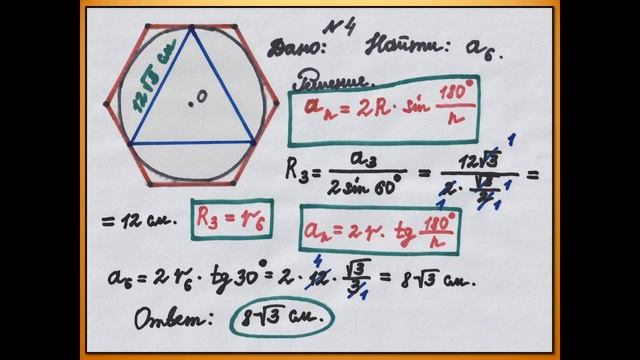 №4
Дано: Найти: a₆.
12√3 см
O
Решение.
aₙ = 2R · sin 180°/n
R₃ = a₃/(2 sin 60°) = 12√3/(2 · √3/2) =
= 12 см. R₃ = r₆ aₙ = 2r · tg 180°/n
a₆ = 2r₆ · tg 30° = 2 · 12 · √3/3 = 8√3 см.
Ответ: 8√3 см.